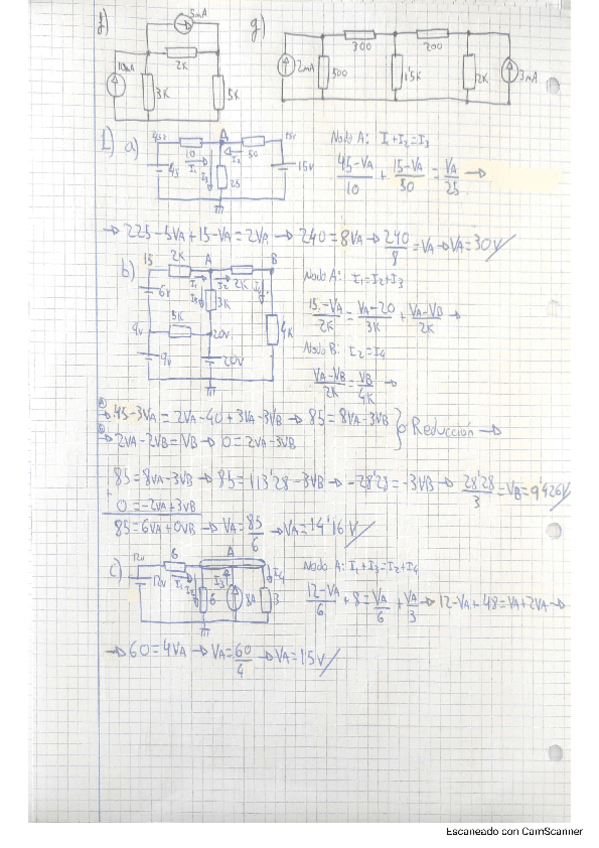 f)
5mA
2K
10mA
3K
5K
g)
300
200
2mA
500
1'5K
2K
3mA
1) a)
45v
A
15v
10
I1
I2
50
I3
25
45
15v
Nodo A: I1+I2=I3
45-VA/10 + 15-VA/50 = VA/25 →
→ 225-5VA+15-VA=2VA → 240=8VA → 240/8=VA → VA=30V
b)
15
2K
A
B
I1
I2
2K
I4
6v
I3
3K
9v
5K
20v
4K
9v
20v
Nodo A: I1=I2+I3
15-VA/2K = VA-20/3K + VA-VB/2K →
Nodo B: I2=I4
VA-VB/2K = VB/4K →
→ 45-3VA=2VA-40+3VA-3VB → 85=8VA-3VB
→ 2VA-2VB=VB → 0=2VA-3VB
Reducción →
85=8VA-3VB → 85=113'28-3VB → -28'28=-3VB → 28'28/3=VB=9'426V
+
0=-2VA+3VB
85=6VA+0VB → VA=85/6 → VA=14'16V
c)
12v
6
A
12v
I1
I2
6
I3
8A
I4
3
Nodo A: I1+I3=I2+I4
12-VA/6 + 8 = VA/6 + VA/3 → 12-VA+48=VA+2VA →
→ 60=4VA → VA=60/4 → VA=15V
Escaneado con CamScanner